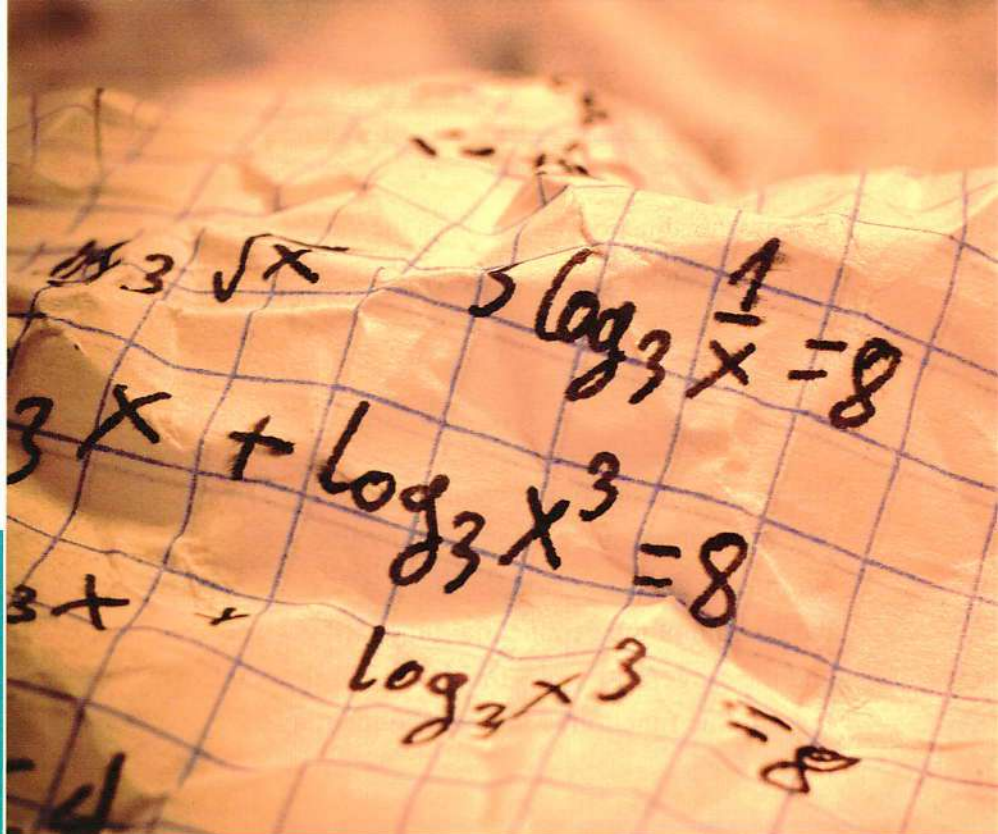 log₃ √x 3 log₃ 1/x = 8
3 x + log₃ x³ = 8
3 x + log₃ x³ = 8
= 4